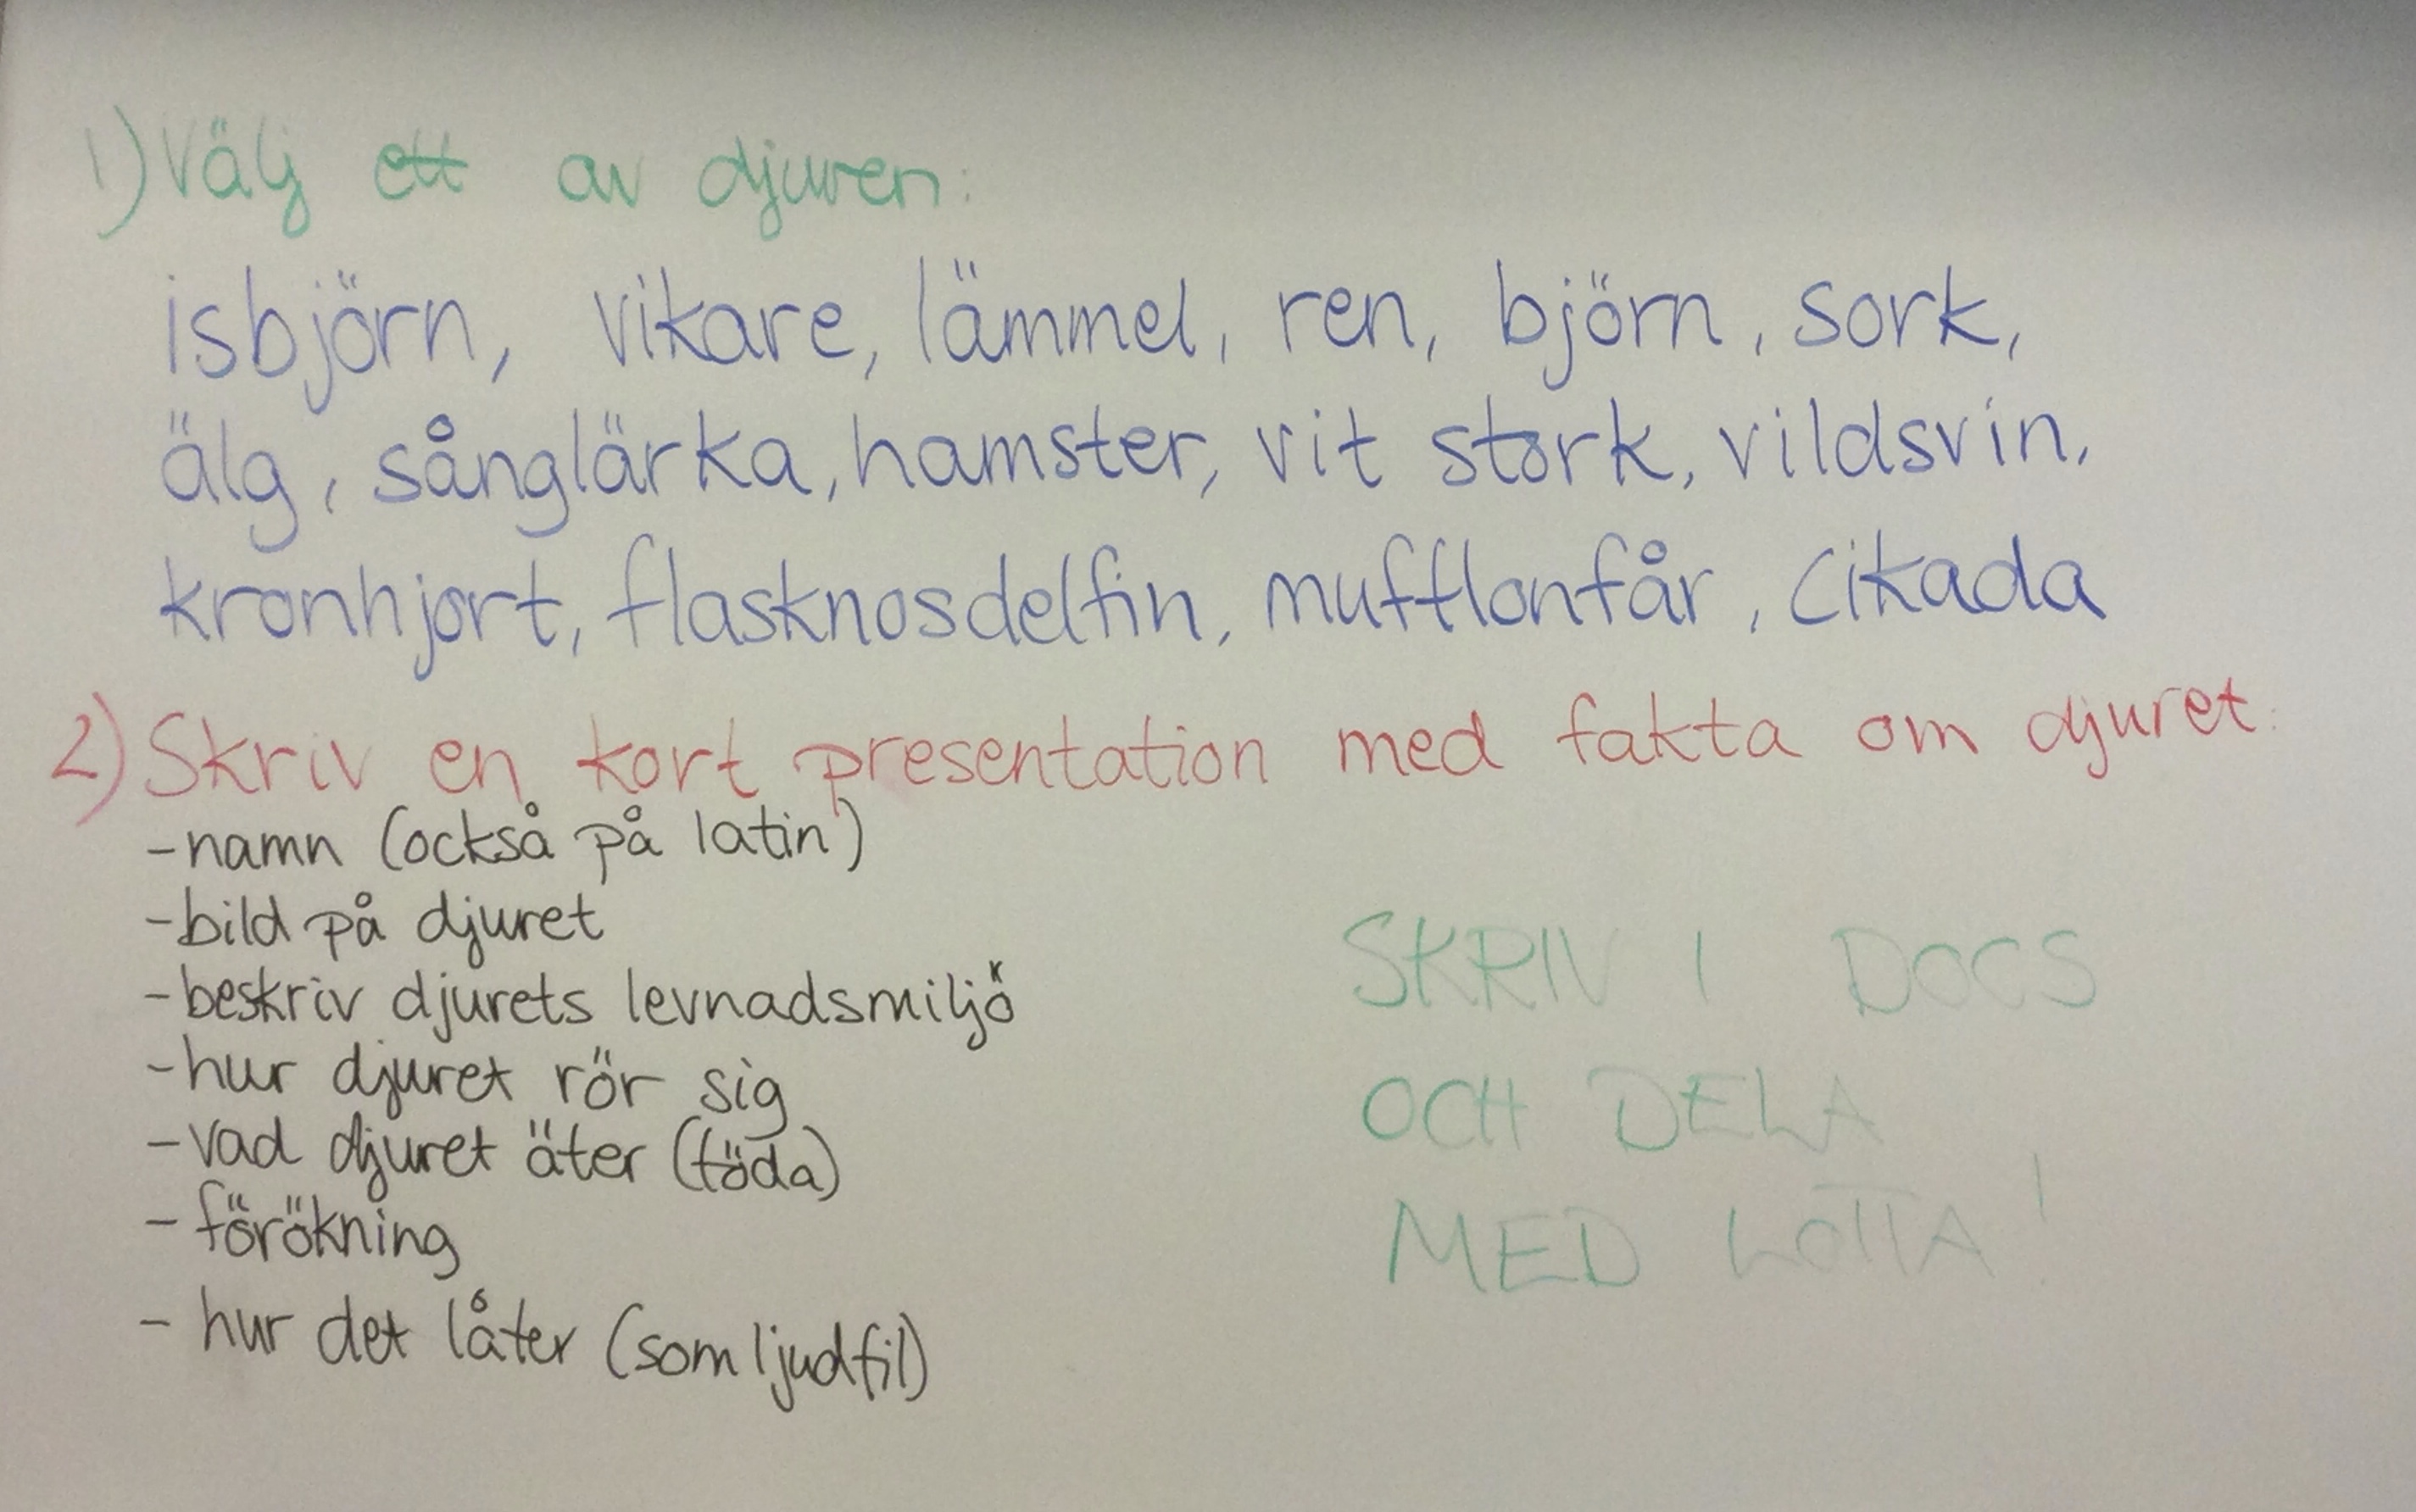 1) Välj ett av djuren:
isbjörn, vikare, lämmel, ren, björn, sork,
älg, sånglärka, hamster, vit stork, vildsvin,
kronhjort, flasknosdelfin, mufflonfår, cikada
2) Skriv en kort presentation med fakta om djuret:
- namn (också på latin)
- bild på djuret
- beskriv djurets levnadsmiljö
- hur djuret rör sig
- vad djuret äter (föda)
- förökning
- hur det låter (som ljudfil)
SKRIV I DOCS
OCH DELA
MED LOTTA!